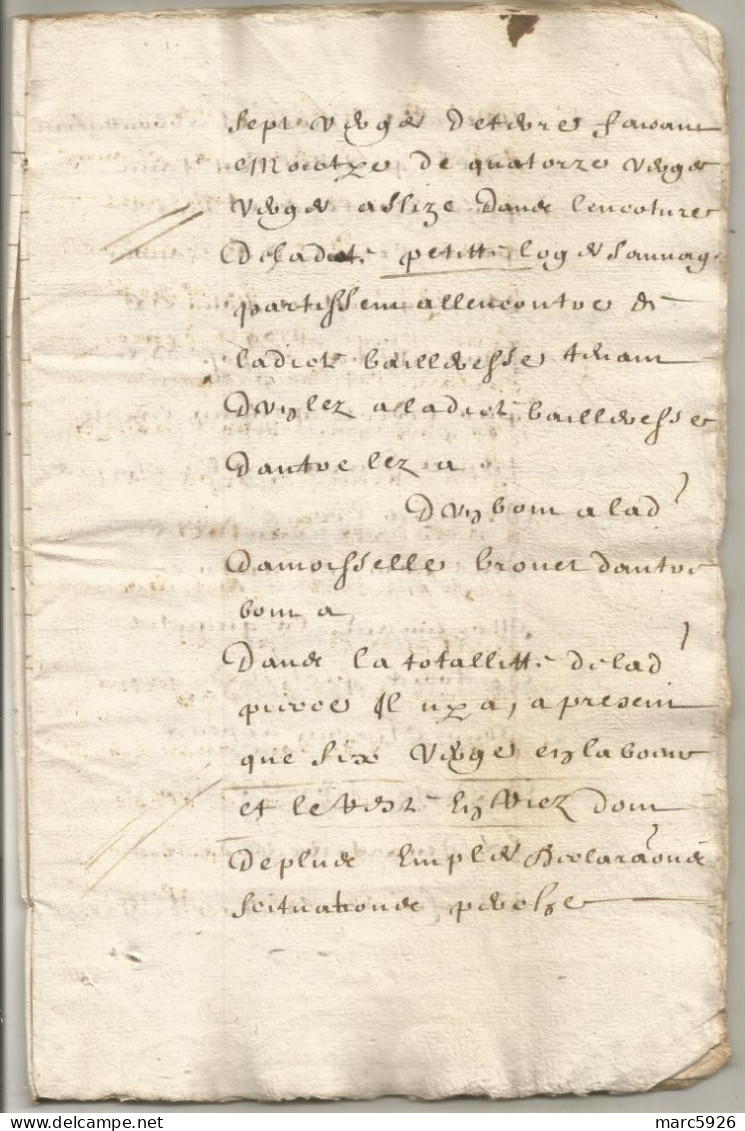 sept verges de terre faisant
Moictye de quatorze verges
verges assize dans lencoture
de ladicte petitte loge sauvag
partissem allencontre de
ladicte bailleresse tenant
dung lez a ladicte bailleresse
dautre lez a
dung bout a lad
damoisselle brouet dautre
bout a
Dans la totallitté de lad
piece Il ny a, a present
que six verge en labour
et le reste En riez dont
de plus emples declaraons
scituations
marc5926